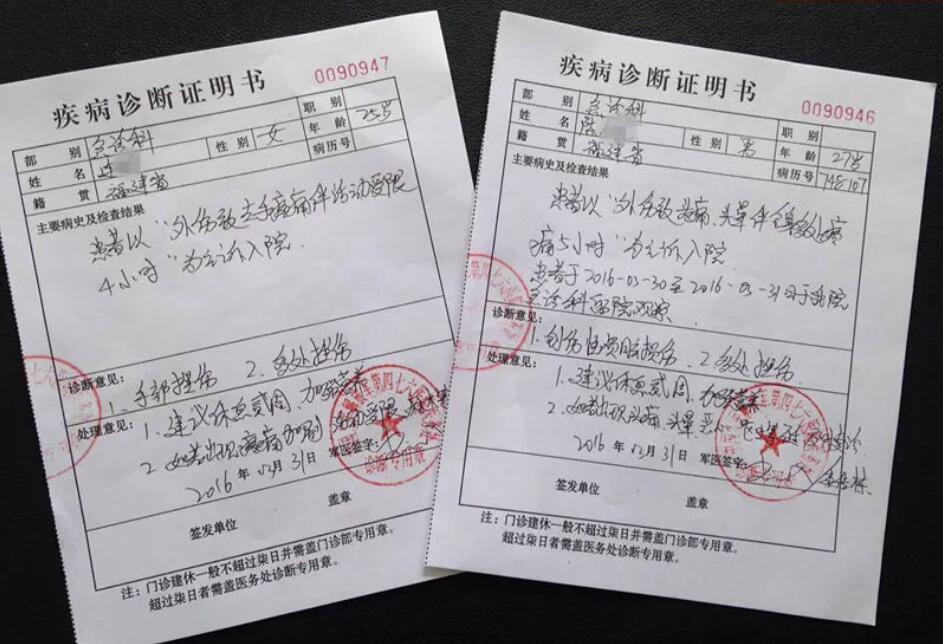 0090947
疾病诊断证明书
部 别 急诊科 职 别
姓 名 性 别 女 年 龄 25岁
籍 贯 福建省 病历号
主要病史及检查结果
患者以“外伤致左手疼痛伴活动受限
4小时”为主诉入院.
诊断意见:
1. 手部挫伤 2. 多处挫伤
处理意见:
1. 建议休息贰周、加强营养
2. 如若出现疼痛加剧 活动受限
2016 年 03 月 31 日 军医签字:
签发单位 盖章
注:门诊建休一般不超过柒日并需盖门诊部专用章。
超过柒日者需盖医务处诊断专用章。
诊断专用章
0090946
疾病诊断证明书
部 别 急诊科 职 别
姓 名 性 别 男 年 龄 27岁
籍 贯 福建省 病历号 748107
主要病史及检查结果
患者以“外伤致头痛、头晕伴全身多处疼
痛5小时”为主诉入院
患者于2016-03-30至2016-03-31日于我院
急诊科留院观察.
诊断意见:
1. 2. 多处挫伤
处理意见:
1. 建议休息贰周、加强营养
2. 如若出现头痛、头晕、恶心
2016 年 03 月 31 日 军医签字:
签发单位 盖章
注:门诊建休一般不超过柒日并需盖门诊部专用章。
超过柒日者需盖医务处诊断专用章。